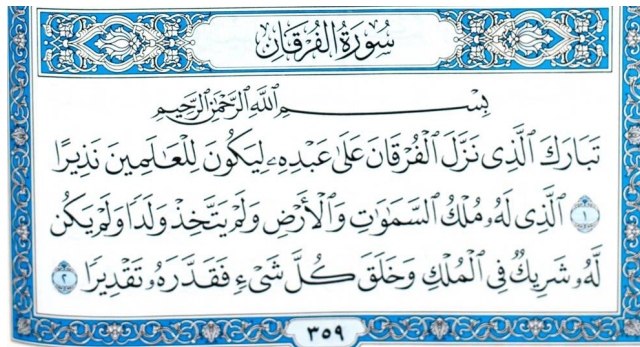 سُورَةُ الْفُرْقَانِ
بِسْمِ اللَّهِ الرَّحْمَٰنِ الرَّحِيمِ
تَبَارَكَ ٱلَّذِى نَزَّلَ ٱلْفُرْقَانَ عَلَىٰ عَبْدِهِۦ لِيَكُونَ لِلْعَـٰلَمِينَ نَذِيرًا
١ ٱلَّذِى لَهُۥ مُلْكُ ٱلسَّمَـٰوَٰتِ وَٱلْأَرْضِ وَلَمْ يَتَّخِذْ وَلَدًا وَلَمْ يَكُن
لَّهُۥ شَرِيكٌ فِى ٱلْمُلْكِ وَخَلَقَ كُلَّ شَىْءٍ فَقَدَّرَهُۥ تَقْدِيرًا ٢
٣٥٩